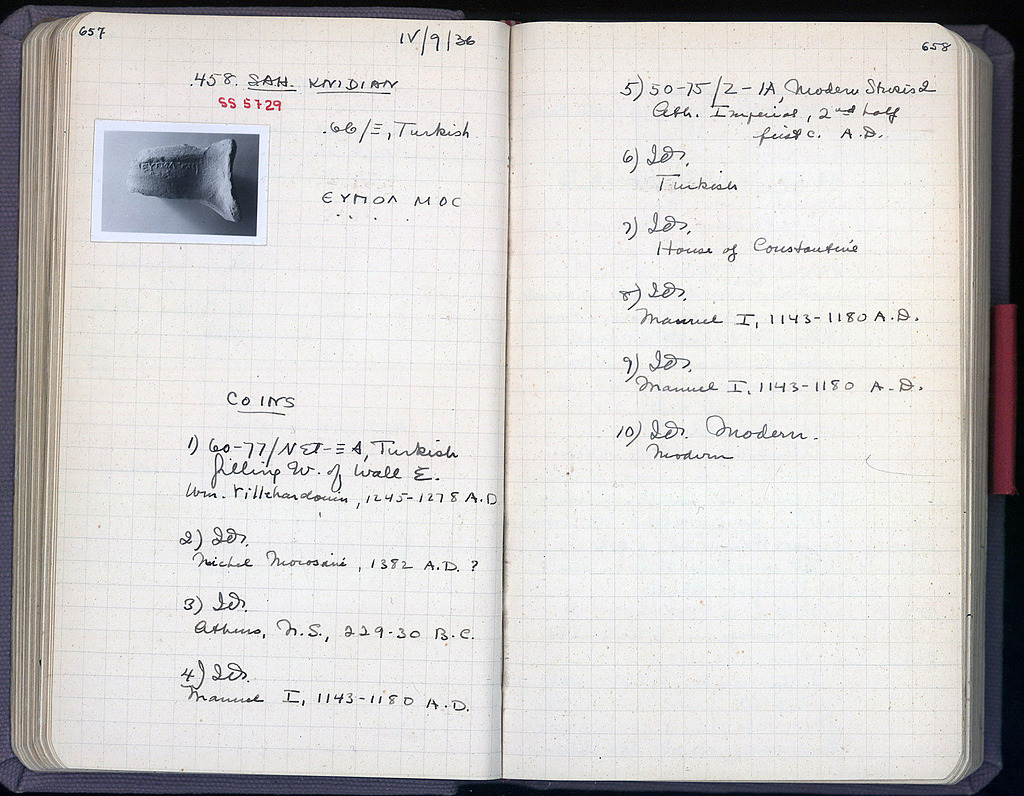 657
IV/9/36
.458. SAH. KNIDIAN
SS 5729
.66/Ξ, Turkish
ΕΥΠΟΛ ΜΟС
COINS
1) 60-77/ΝΣΤ-Ξ A, Turkish
filling W. of Wall E.
Wm. Villehardouin, 1245-1278 A.D
2) Id.
Michel Morosini, 1382 A.D. ?
3) Id.
Athens, N.S., 229-30 B.C.
4) Id.
Manuel I, 1143-1180 A.D.
658
5) 50-75/Z-IA, Modern
Ath. Imperial, 2nd half
first c. A.D.
6) Id.
Turkish
7) Id.
House of Constantine
8) Id.
Manuel I, 1143-1180 A.D.
9) Id.
Manuel I, 1143-1180 A.D.
10) Id. Modern.
Modern